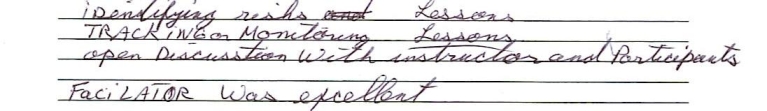 iDendifying risks and Lessons
TRACKiNG or Monitoring Lessons
open Discusstion With instructor and Participants
FaciLATOR Was excellent